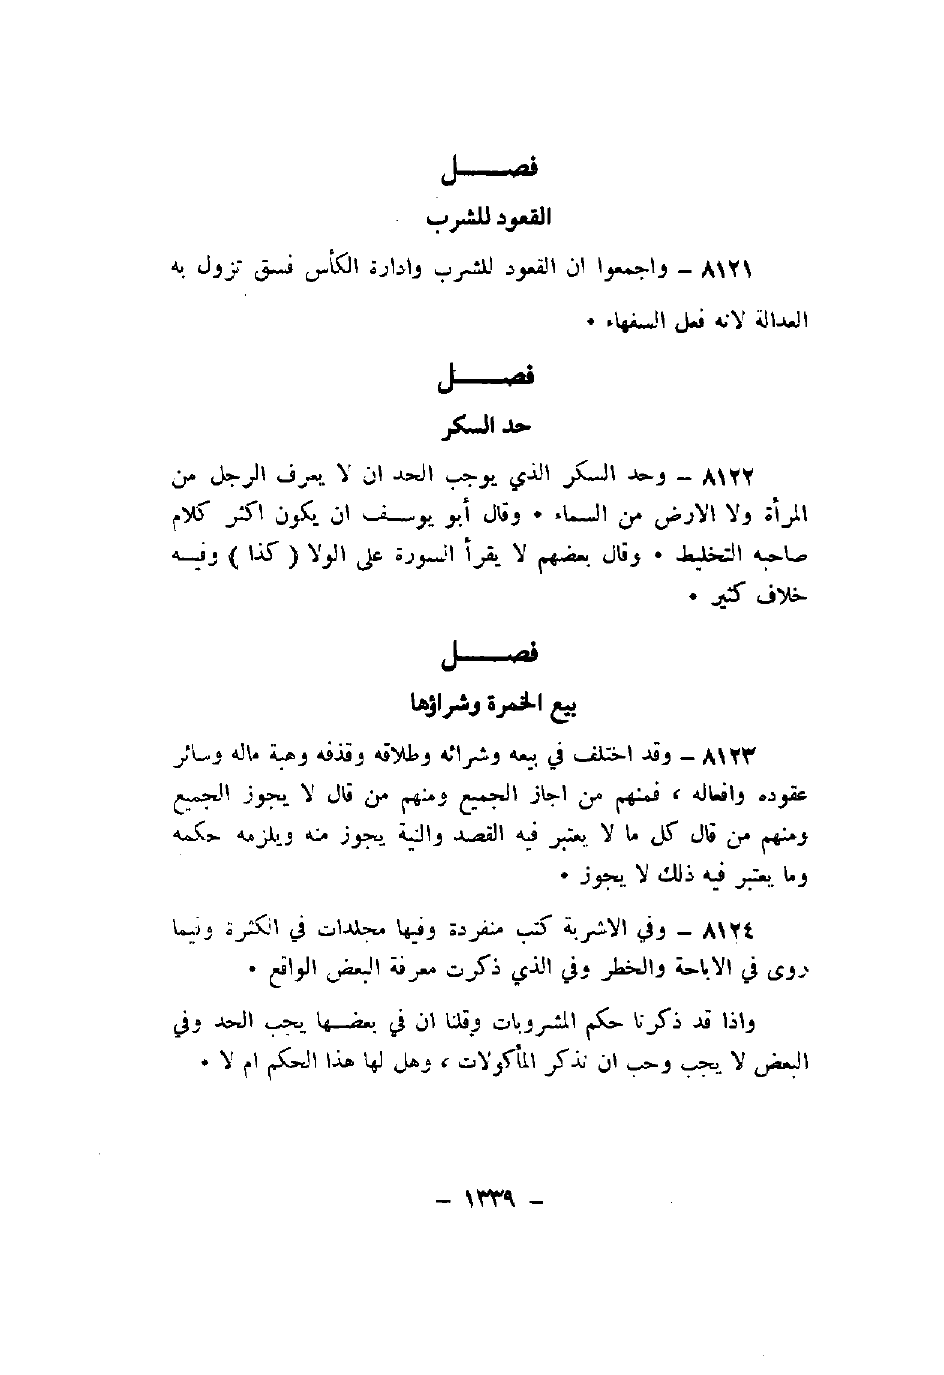 فصـــــل
القعود للشرب
٨١٢١ – واجمعوا ان القعود للشرب وادارة الكأس فسق تزول به
العدالة لانه فعل السفهاء •
فصـــــل
حد السكر
٨١٢٢ – وحد السكر الذي يوجب الحد ان لا يعرف الرجل من
المرأة ولا الارض من السماء • وقال أبو يوسـف ان يكون اكثر كلام
صاحبه التخليط • وقال بعضهم لا يقرأ السورة على الولا ( كذا ) وفيـه
خلاف كثير •
فصـــــل
بيع الخمرة وشراؤها
٨١٢٣ – وقد اختلف في بيعه وشرائه وطلاقه وقذفه وهبة ماله وسائر
عقوده وافعاله ، فمنهم من اجاز الجميع ومنهم من قال لا يجوز الجميع
ومنهم من قال كل ما لا يعتبر فيه القصد والنية يجوز منه ويلزمه حكمه
وما يعتبر فيه ذلك لا يجوز •
٨١٢٤ – وفي الاشربة كتب منفردة وفيها مجلدات في الكثرة وفيما
روى في الاباحة والخطر وفي الذي ذكرت معرفة البعض الواقع •
واذا قد ذكرنا حكم المشروبات وقلنا ان في بعضـها يجب الحد وفي
البعض لا يجب وحب ان نذكر المأكولات ، وهل لها هذا الحكم ام لا •
– ١٣٣٩ –